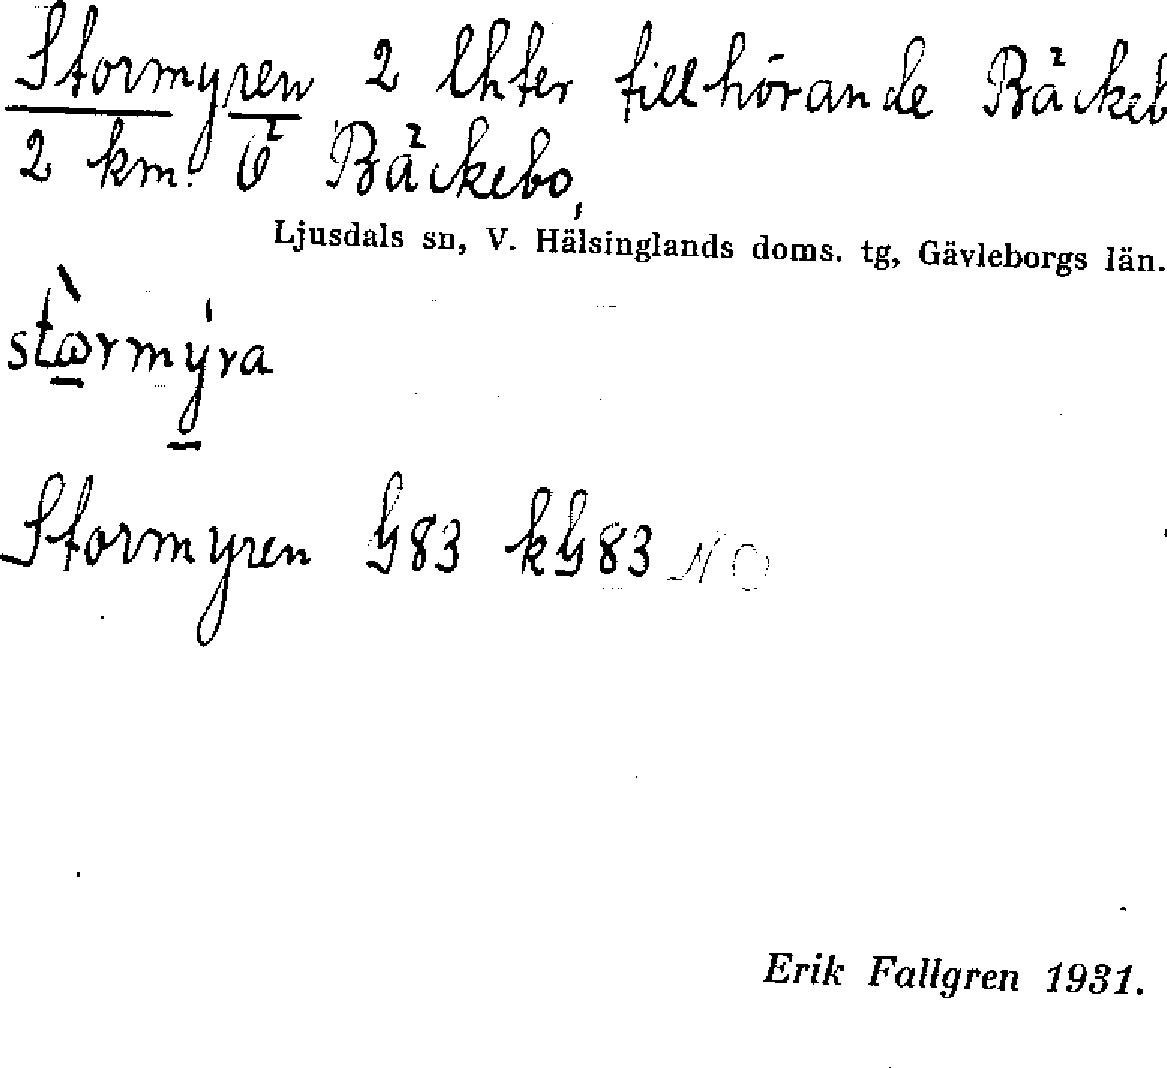 Stormyren 2 lhter tillhörande Bäckeb
2 km. Ö Bäckebo,
Ljusdals sn, V. Hälsinglands doms. tg, Gävleborgs län.
Stormyren G83 kG83 NO
Erik Fallgren 1931.